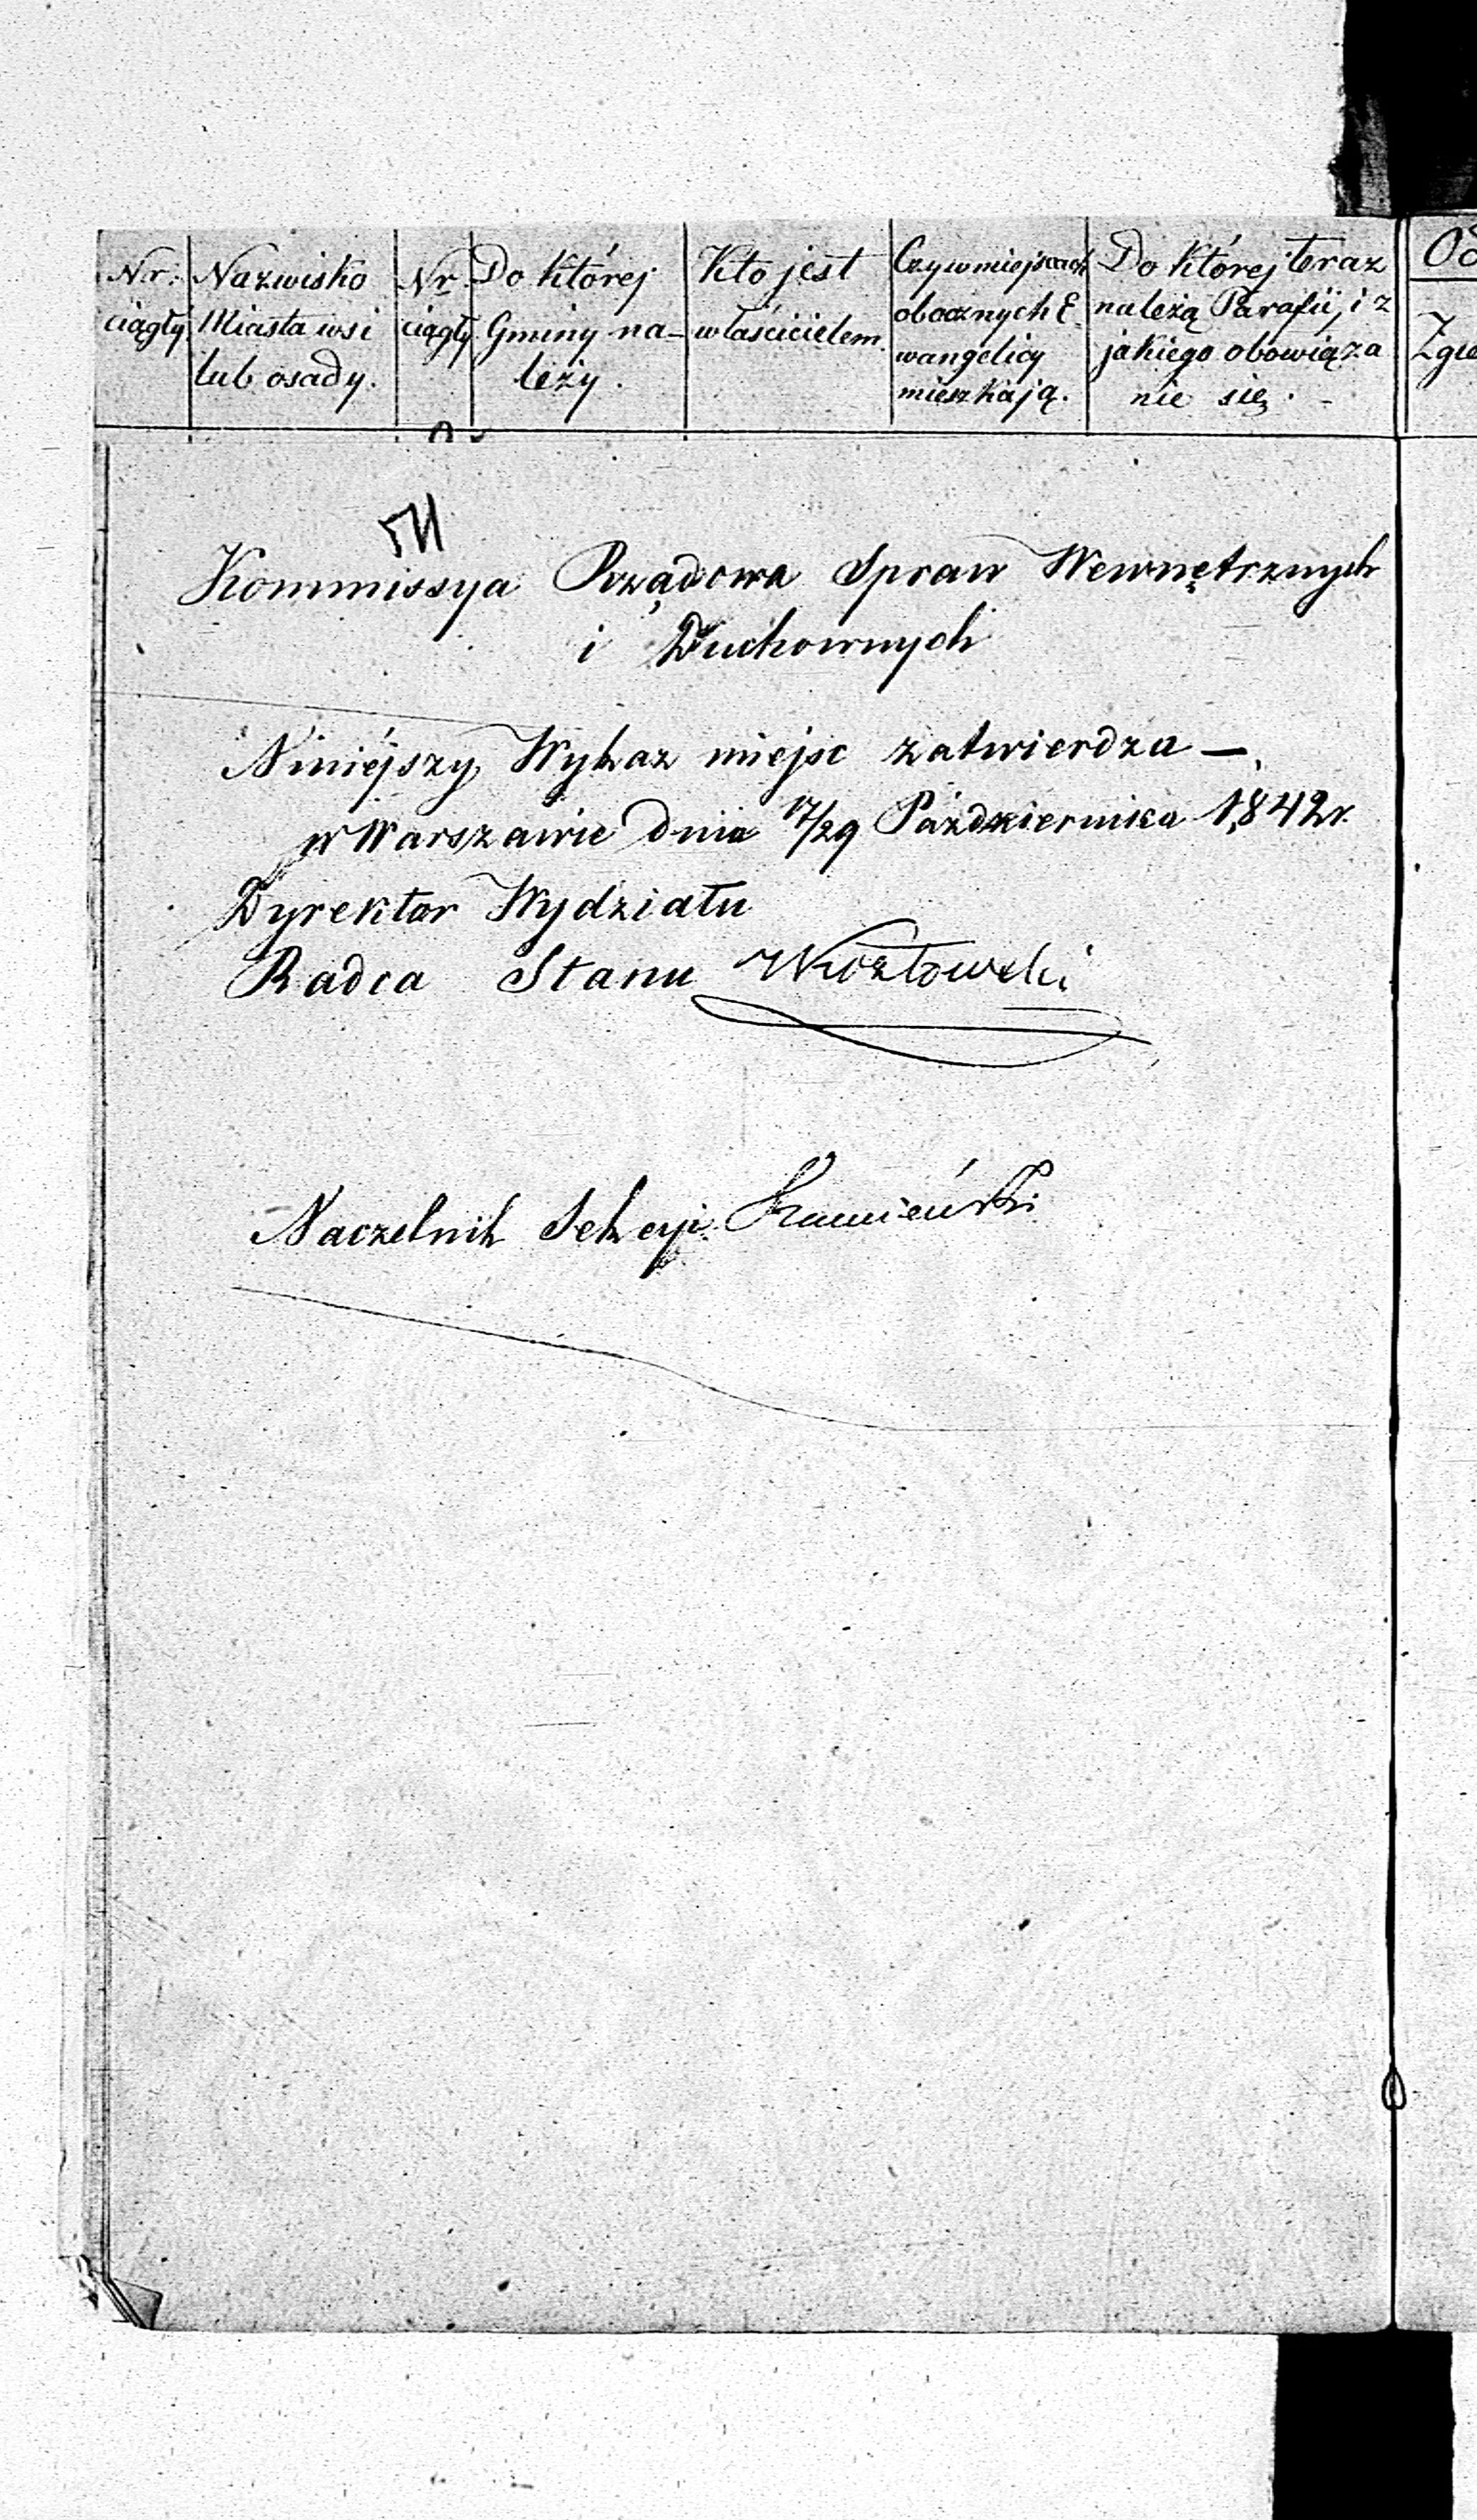 Nr: ciągły
Nazwisko
Miasta wsi
lub osady.
Nr. ciągły
Do której
Gminy na-
leży.
Kto jest
właścicielem.
Czy w miejscach
obocznych E-
wangelicy
mieszkają.
Do której teraz
należą Parafii, i z
jakiego obowiąza
nie się.
Kommissya Rządowa Spraw Wewnętrznych
i Duchownych
Niniejszy Wykaz miejsc zatwierdza —
w Warszawie dnia 17/29 Października 1,842 r.
Dyrektor Wydziału
Radca Stanu Kozłowski
Naczelnik Sekcyi Kamieński